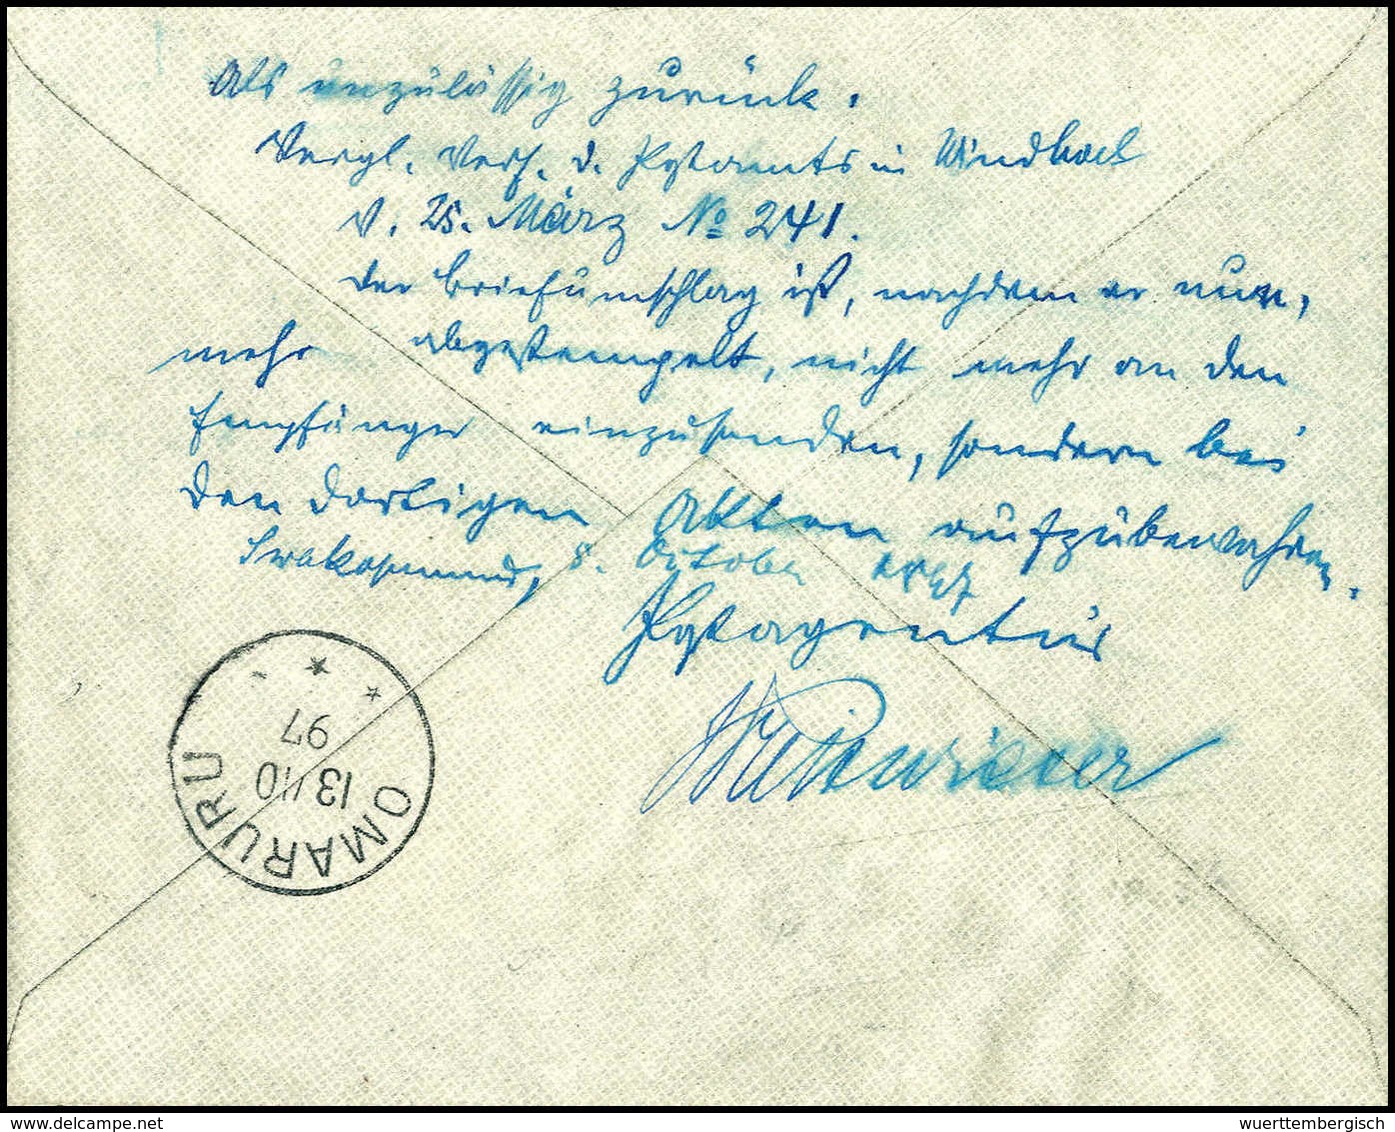 Als unzulässig zurück.
Vergl. Verf. d. Postamts in Windhoek
v. 25. März No 241.
Der Briefumschlag ist, nachdem er nun-
mehr abgestempelt, nicht mehr an den
Empfänger einzusenden, sondern bei
den dortigen Akten aufzubewahren.
Swakopmund, 8. October 1897
Postagentur
OMARURU
13/10
97
wuerttembergisch